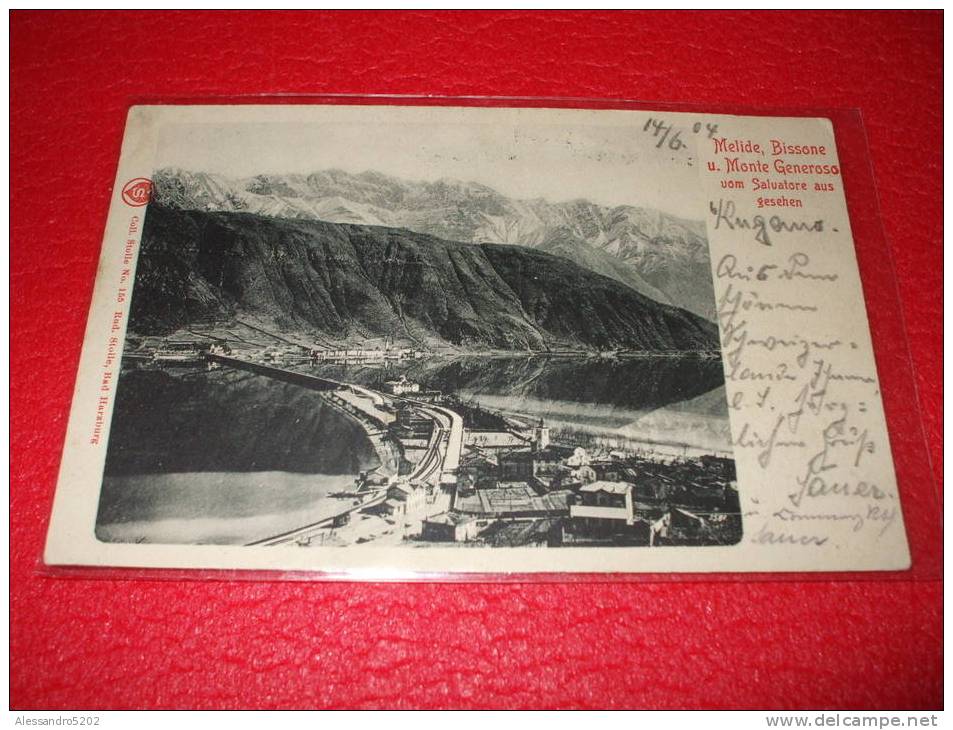 14/6. 04
Melide, Bissone
u. Monte Generoso
vom Salvatore aus
gesehen
Lugano.
Aus
schönen
Schweizer-
lande
herz-
lichen Gruß
Sauer.
Sauer.
Coll. Stolle No. 155 Rud. Stolle, Bad Harzburg
Alessandro5202
www.delcampe.net